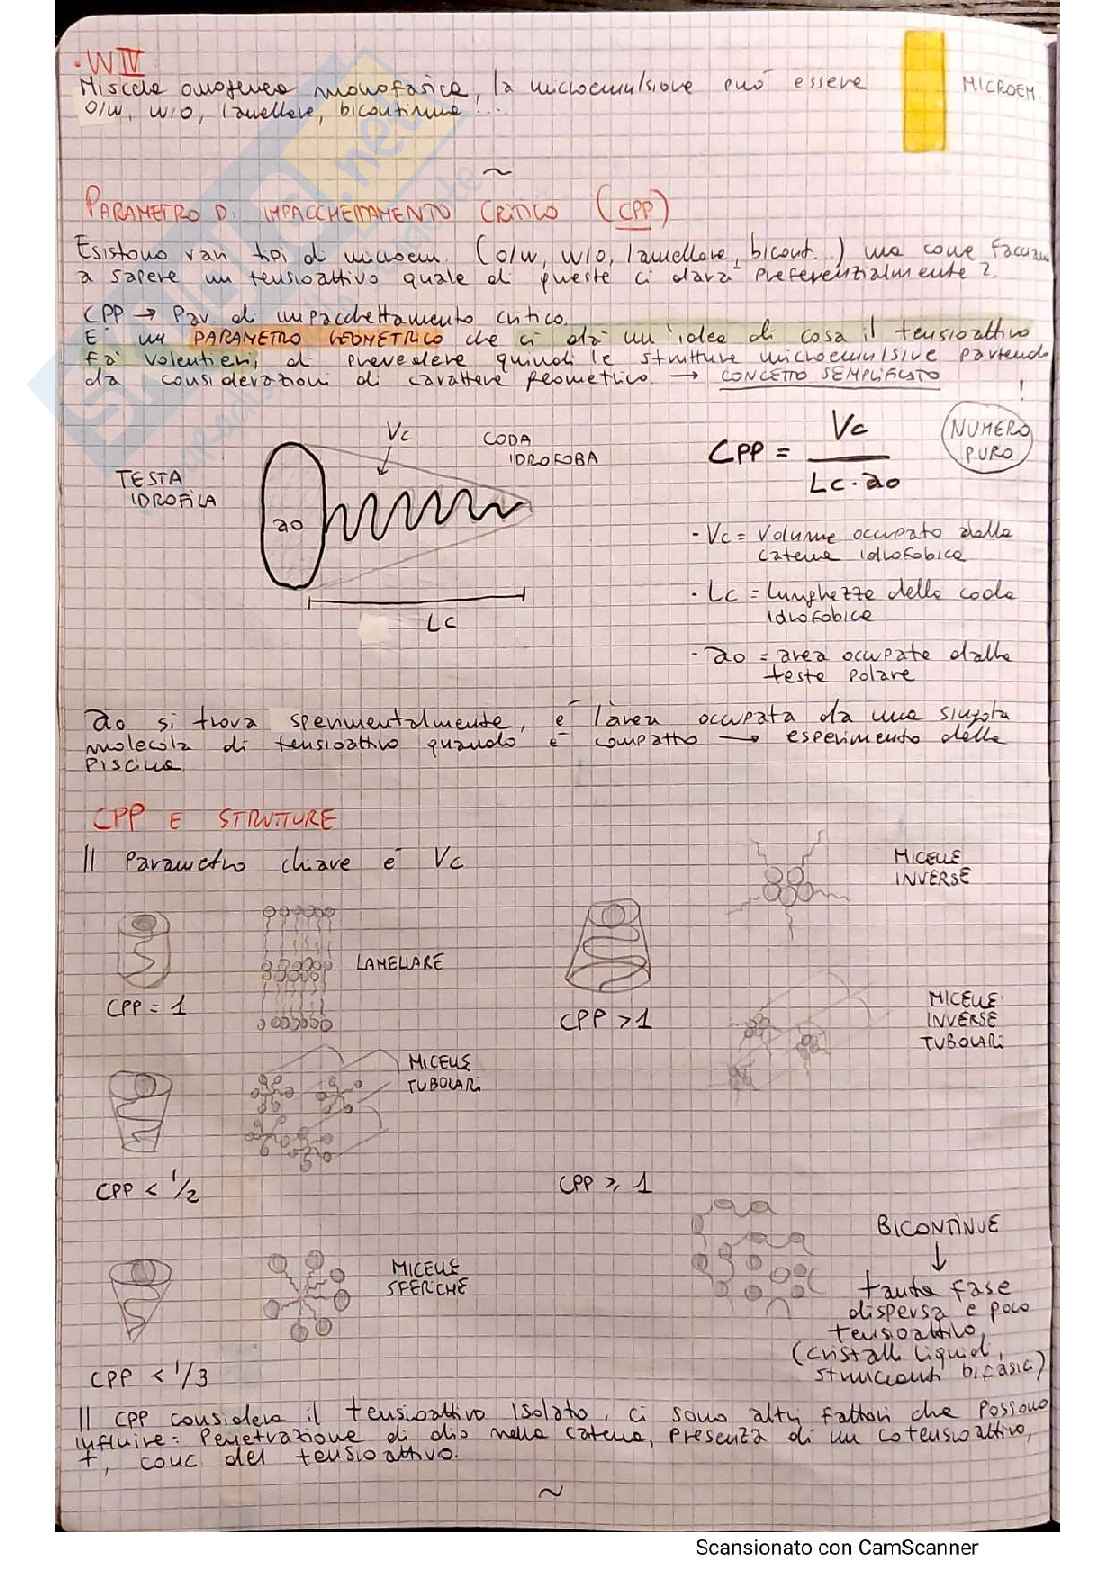 · WIV
Miscela omogenea monofasica, la microemulsione può essere
O/W, W/O, lamellare, bicontinua ...
MICROEM.
~
PARAMETRO DI IMPACCHETTAMENTO CRITICO (CPP)
Esistono vari tipi di microem. (O/W, W/O, lamellare, bicont...) ma come facciamo
a sapere un tensioattivo quale di queste ci darà preferenzialmente?
CPP → Par di impacchettamento critico.
È un PARAMETRO GEOMETRICO che ci dà un'idea di cosa il tensioattivo
fa volentieri, di prevedere quindi le strutture microemulsive partendo
da considerazioni di carattere geometrico. → CONCETTO SEMPLIFICATO
!
TESTA
IDROFILA
ao
Vc
CODA
IDROFOBA
Lc
CPP = Vc
Lc · ao
NUMERO
PURO
· Vc = Volume occupato dalla
catena idrofobica
· Lc = lunghezza della coda
idrofobica
· ao = area occupata dalla
testa polare
ao si trova sperimentalmente, è l'area occupata da una singola
molecola di tensioattivo quando è compatto → esperimento della
piscina
CPP E STRUTTURE
Il parametro chiave è Vc
MICELLE
INVERSE
LAMELARE
CPP = 1
CPP > 1
MICELLE
INVERSE
TUBOLARI
MICELLE
TUBOLARI
CPP < 1/2
CPP ⩾ 1
BICONTINUE
↓
tanta fase
dispersa e poco
tensioattivo,
(cristalli liquidi,
strutturanti bifasici)
MICELLE
SFERICHE
CPP < 1/3
Il CPP considera il tensioattivo isolato, ci sono altri fattori che possono
influire: Penetrazione di olio nella catena, presenza di un cotensioattivo,
T, conc del tensioattivo.
~
Scansionato con CamScanner